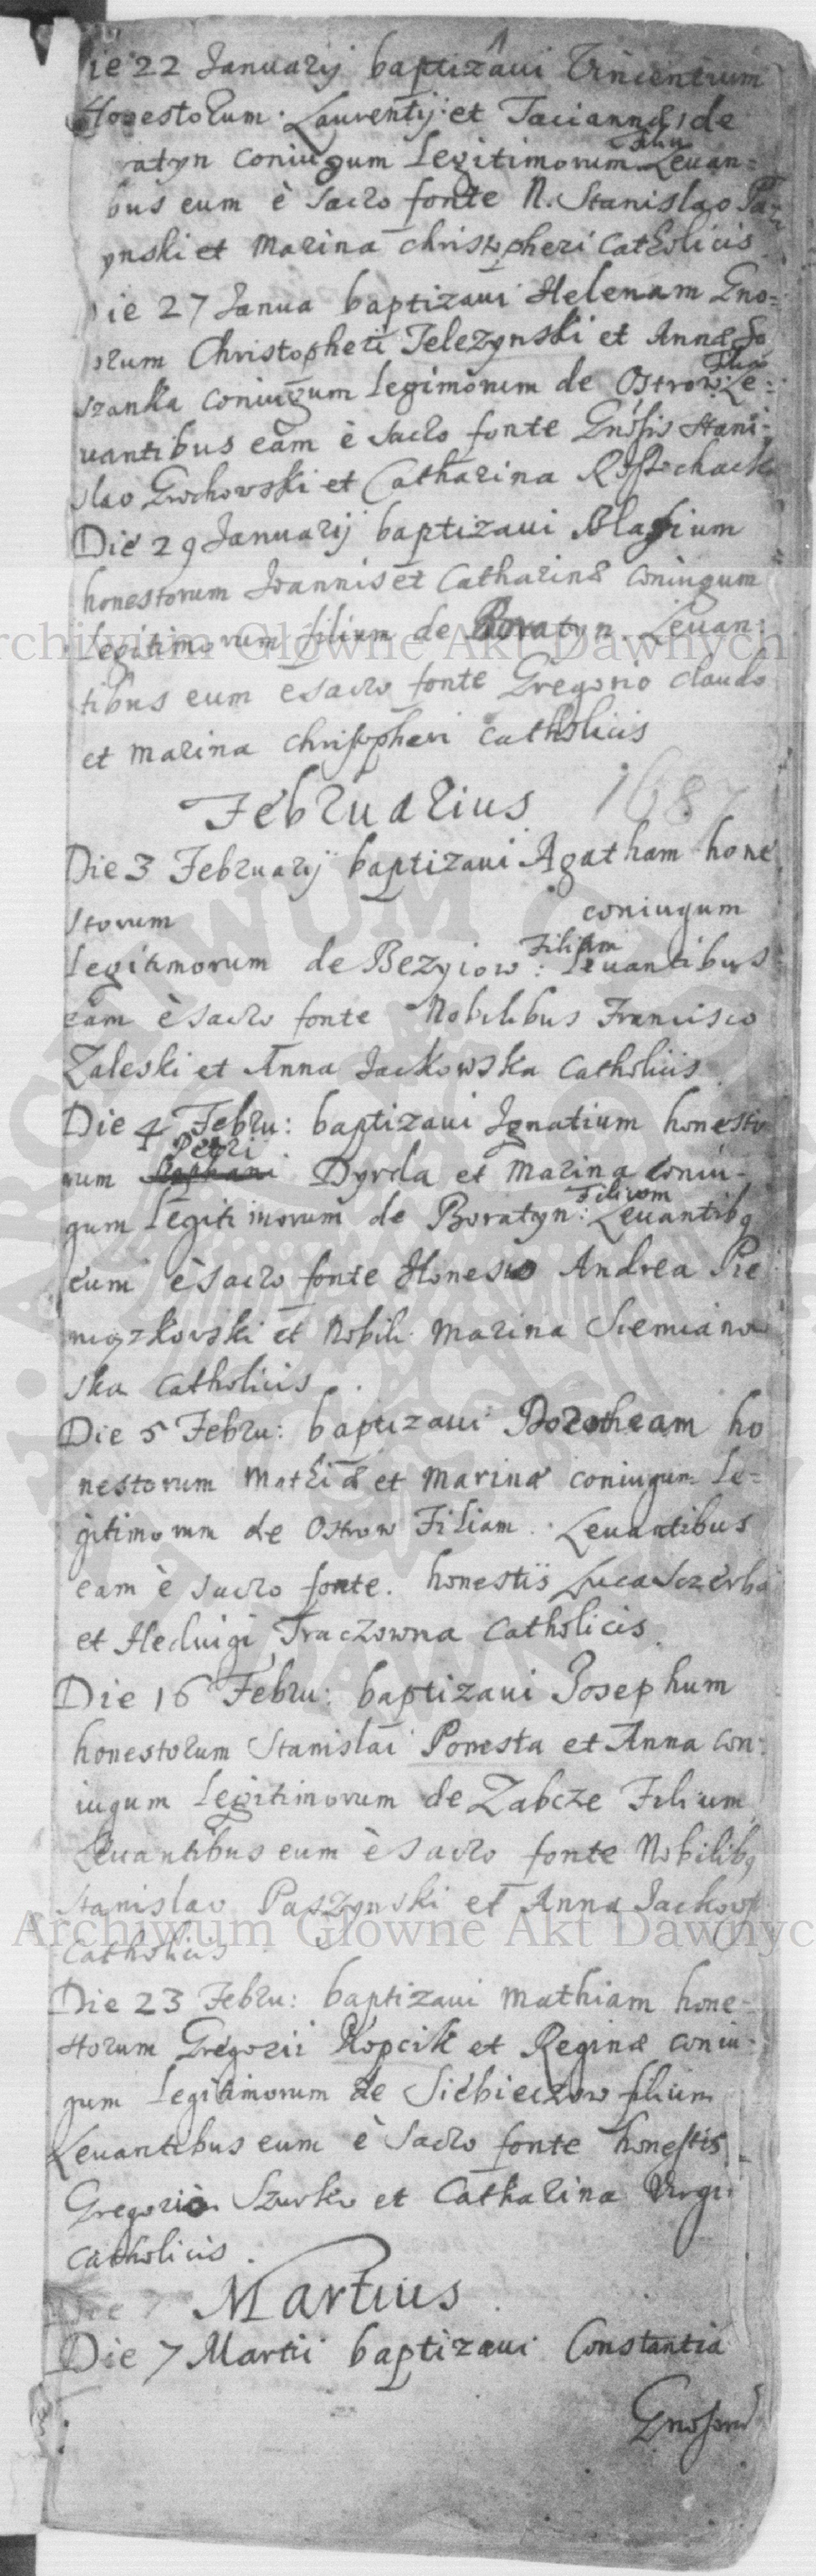 ie 22 Januarij baptizaui Vincentium
Honestorum Laurentij et Taciannæ de
ratyn coniugum Legitimorum Filiu Leuan=
bus eum è sacro fonte N. Stanislao Pa
ynski et Marina Christopheri Catholicis
ie 27 Janua baptizaui Helenam Gno=
orum Christopheri Telezynski et Annæ
szanka coniugum Legimorum de Ostrow: Filia Le=
uantibus eam è sacro fonte Gnosis Stani=
slao Grochowski et Catharina
Die 29 Januarij baptizaui Blasium
honestorum Joannis et Catharinæ coniugum
Legitimorum filium de Boratyn. Leuan=
tibus eum è sacro fonte Gregorio claudo
et Marina Christopheri Catholicis
Februarius 1687
Die 3 Februarij baptizaui Agatham hone
storum coniugum
Legitimorum de Bezyiow: Filiam Leuantibus
eam è sacro fonte Nobilibus Francisco
Zaleski et Anna Jackowska Catholicis
Die 4 Febru: baptizaui Ignatium honesto
rum Petri Dyrda et Marina coniu-
gum Legitimorum de Boratyn: Filium Leuantibq
eum è sacro fonte Honesto Andrea Pie
niążkowski et Nobili Marina Siemianow
ska Catholicis.
Die 5 Febru: baptizaui Dorotheam ho
nestorum Mathiæ et Marinæ coniugum Le=
gitimorum de Ostrow Filiam. Leuantibus
eam è sacro fonte. honestis Luca Sczerba
et Heduigi Traczowna Catholicis
Die 16 Febru: baptizaui Josephum
honestorum Stanislai Ponesta et Anna con=
iugum Legitimorum de Zabcze Filium
Leuantibus eum è sacro fonte Nobilibq
Stanislao Paszynski et Anna Jackows
Catholicis
Die 23 Febru: baptizaui Mathiam hone-
storum Gregorii Kopcik et Reginæ coniu-
gum Legitimorum de Siebieczow filium
Leuantibus eum è sacro fonte honestis
Gregorio Szurko et Catharina
Catholicis.
Die 7 Martius
Die 7 Martii baptizaui Constantia
Gnosorum
Archiwum Głowne Akt Dawnych
Archiwum Głowne Akt Dawnyc